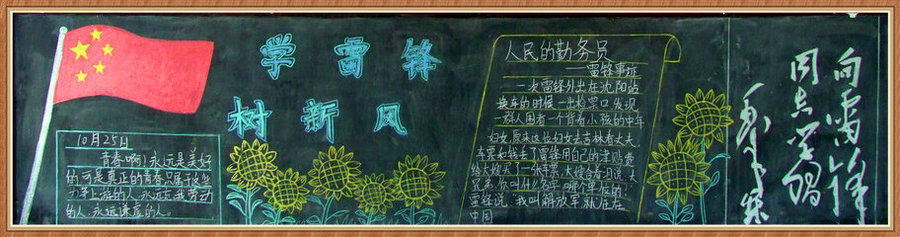 学雷锋
树新风
10月25日
青春啊!永远是美好
的可是真正的青春只属于这些
力争上游的人,永远忘我劳动
的人,永远谦虚的人。
人民的勤务员
——雷锋事迹
一次雷锋外出在沈阳站
换车的时候一出检票口发现
一群人围着一个背着小孩的中年
妇女,原来这位妇女去吉林看丈夫
车票和钱丢了雷锋用自己的津贴费
给大嫂买了一张车票,大嫂含着泪说:大
兄弟你叫什么名字哪个单位的?
雷锋说:我叫解放军就住在
中国
向雷锋
同志学习
毛泽东